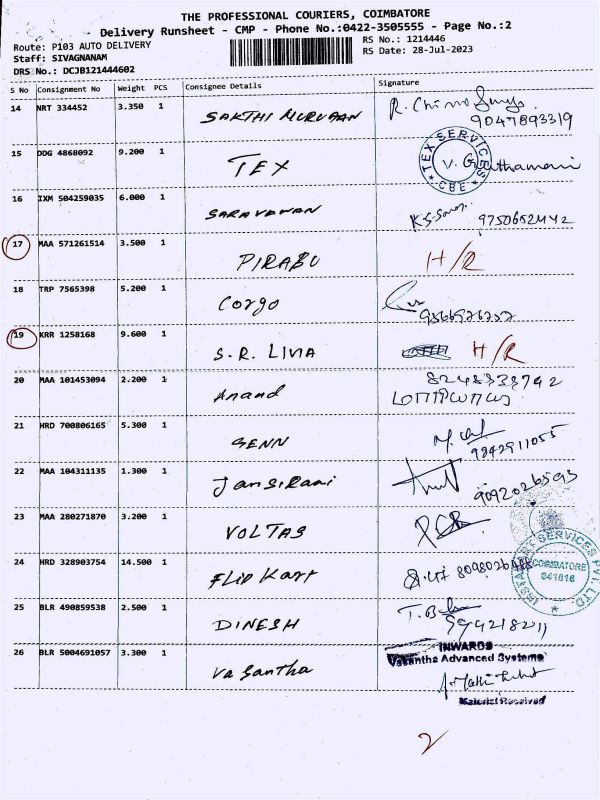 THE PROFESSIONAL COURIERS, COIMBATORE
Delivery Runsheet - CMP - Phone No.:0422-3505555 - Page No.:2
Route: P103 AUTO DELIVERY
RS No.: 1214446
Staff: SIVAGNANAM
RS Date: 28-Jul-2023
DRS No.: DCJB121444602
S No Consignment No Weight PCS Consignee Details Signature
14 NRT 334452 3.350 1 SAKTHI MURUGAN
9047893319
15 DDG 4868092 9.200 1 TEX
TEX SERVICES CBE
16 IXM 504259035 6.000 1 SARAVANAN
17 MAA 571261514 3.500 1 PIRABU H/R
18 TRP 7565398 5.200 1 Corgo
19 KRR 1258168 9.600 1 S.R. LIVIA H/R
20 MAA 101453094 2.200 1 Anand 8248333742
21 HRD 700806165 5.300 1 GENN
9842911055
22 MAA 104311135 1.300 1 Jansirani
9092026593
23 MAA 280271870 3.200 1 VOLTAS
24 HRD 328903754 14.500 1 FLIP Kart
COIMBATORE
641016
25 BLR 490859538 2.500 1 DINESH
26 BLR 5004691057 3.300 1 Vasantha
INWARDS
Vasantha Advanced Systems
Material Received
2